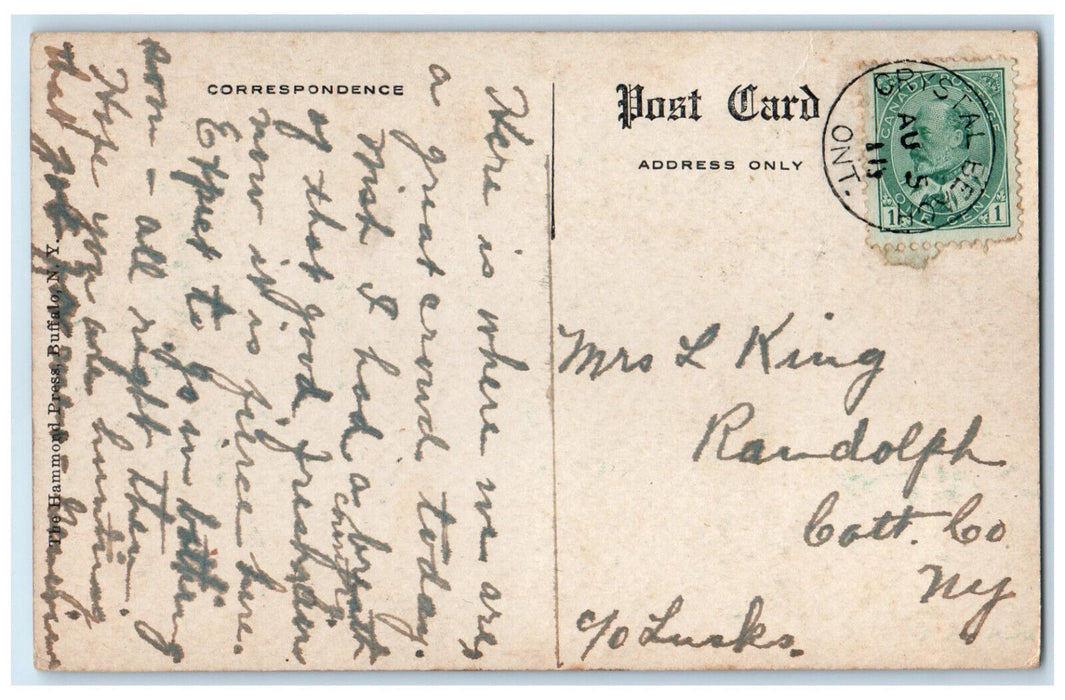 CORRESPONDENCE
Post Card
ADDRESS ONLY
CRYSTAL BEACH
AU 5
11
ONT.
CANADA POSTAGE
ONE CENT
1 1
Here is where we are,
a great crowd today.
Wish I had a breath
of that good fresh
now it is fierce here.
Expect to go in bathing
soon - all right then.
Hope you are hunting
that
The Hammond Press, Buffalo, N. Y.
Mrs L King
Randolph
Catt. Co
NY
c/o Lusks.